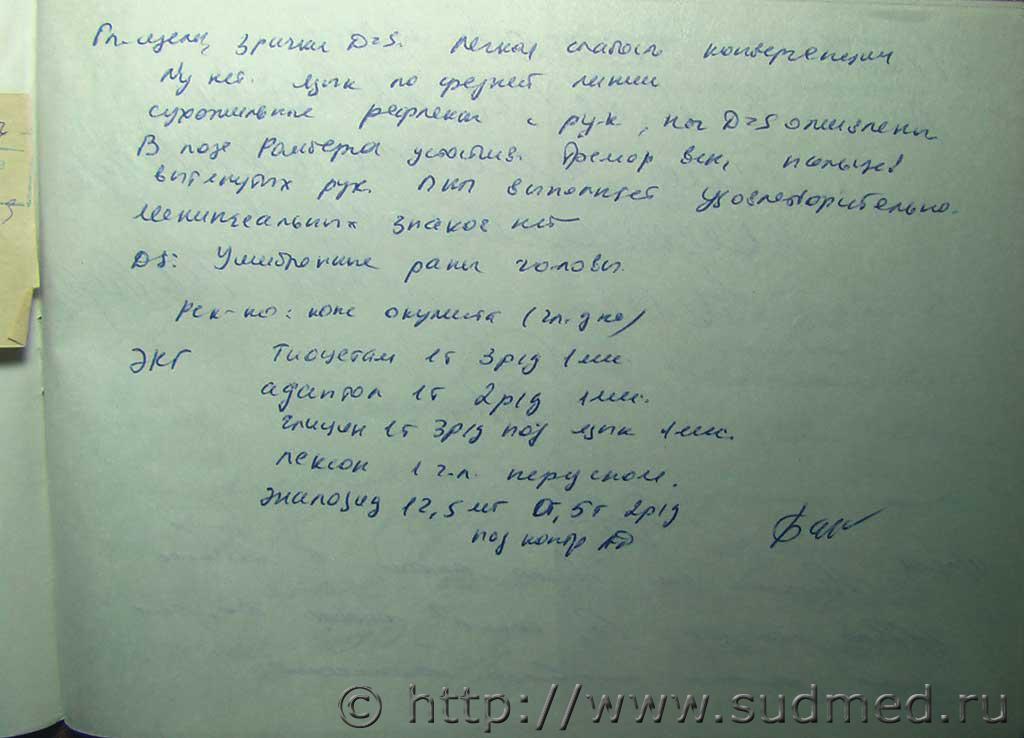 Гл. щели, зрачки D=S. Легкая слабость конвергенции
Ny нет. Язык по средней линии
сухожильные рефлексы с рук, ног D=S оживлены
В позе Ромберга устойчив. Тремор век, пальцев
вытянутых рук. ПНП выполняет удовлетворительно.
Менингеальных знаков нет
DS: Ушибленные раны головы.
Рек-но: конс окулиста (гл. дно)
ЭКГ Тиоцетам 1т 3р/д 1 мес
адаптол 1т 2р/д 1 мес.
глицин 1т 3р/д под язык 1 мес.
1 ч.л. перед сном.
Эналозид 12,5 мг 0,5т 2р/д
под контр АД
© http://www.sudmed.ru